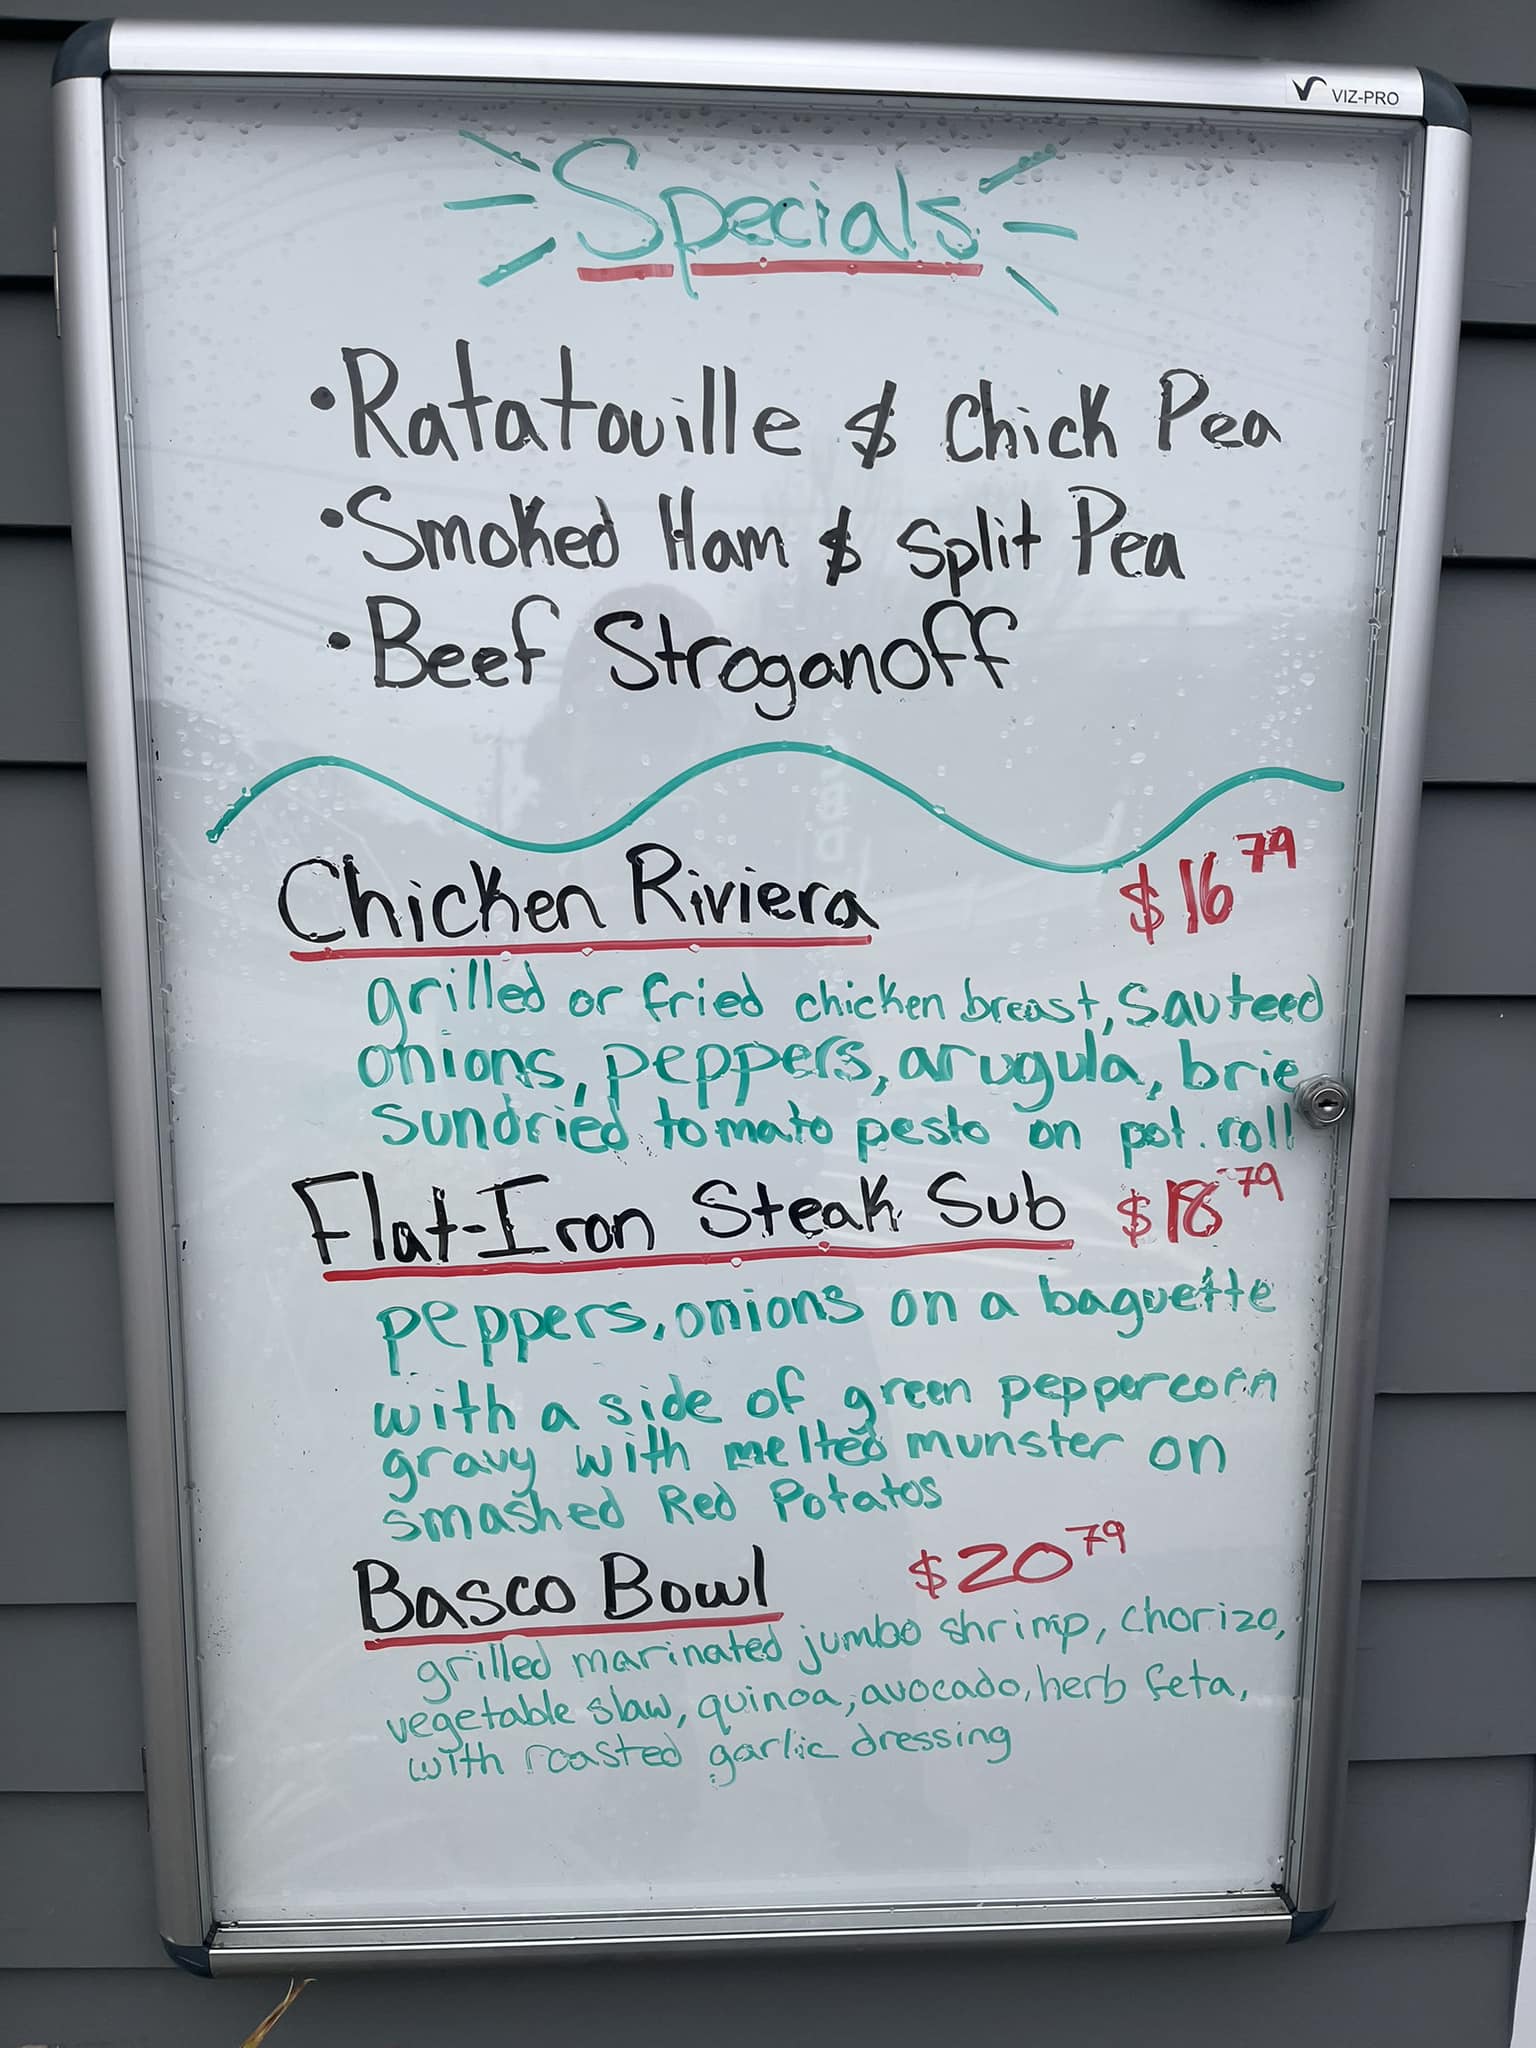 VIZ-PRO
Specials
• Ratatouille & Chick Pea
• Smoked Ham & Split Pea
• Beef Stroganoff
Chicken Riviera $16 79
grilled or fried chicken breast, sauteed
onions, peppers, arugula, brie
sundried tomato pesto on pot. roll
Flat-Iron Steak Sub $18 79
peppers, onions on a baguette
with a side of green peppercorn
gravy with melted munster on
smashed Red Potatos
Basco Bowl $20 79
grilled marinated jumbo shrimp, chorizo,
vegetable slaw, quinoa, avocado, herb feta,
with roasted garlic dressing